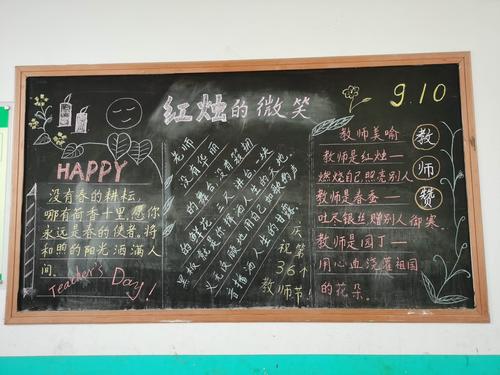 红烛的微笑
9.10
HAPPY
没有春的耕耘,
哪有荷香十里,愿你
永远是春的使者,将
和照的阳光洒满人
间.
Teacher's Day!
老师
没有华丽
的舞台,没有簇拥
的鲜花,三尺讲台一块
黑板就是你挥洒人生的天地,
义无反顾地用自己如歌的声
音播洒人生的甘露.
庆
祝第
36个
教师节!
教师美喻
教师是红烛—
燃烧自己,照亮别人
教师是春蚕—
吐尽银丝赠别人御寒.
教师是园丁—
用心血浇灌祖国
的花朵.
教
师
赞